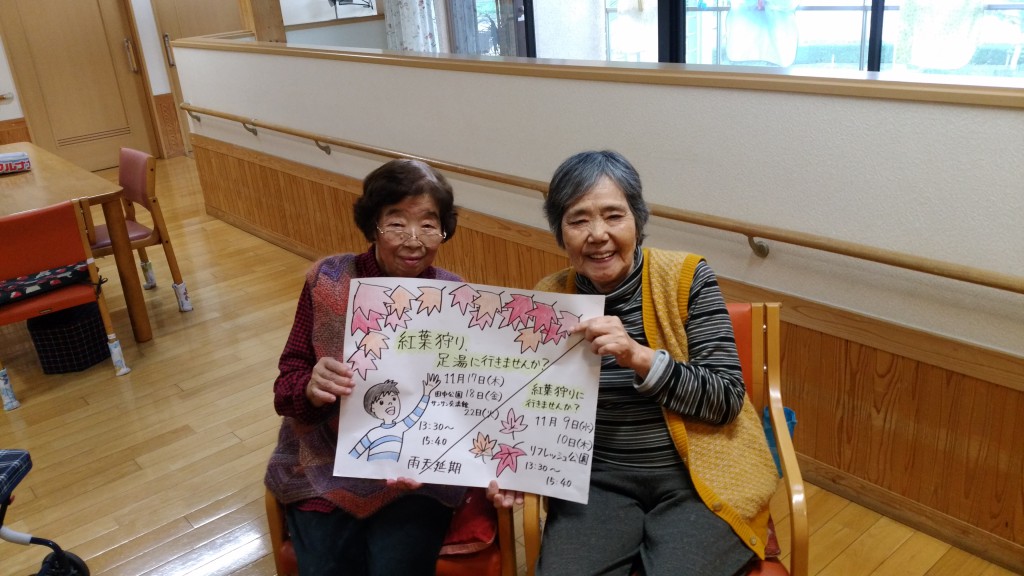 紅葉狩り、
足湯に行きませんか?
11月17日(木)
田中公園 18日(金)
サンサン交流館
22日(火)
13:30〜
15:40
雨天延期
紅葉狩りに
行きませんか?
11月 9日(水)
10日(木)
リフレッシュ公園
13:30〜
15:40